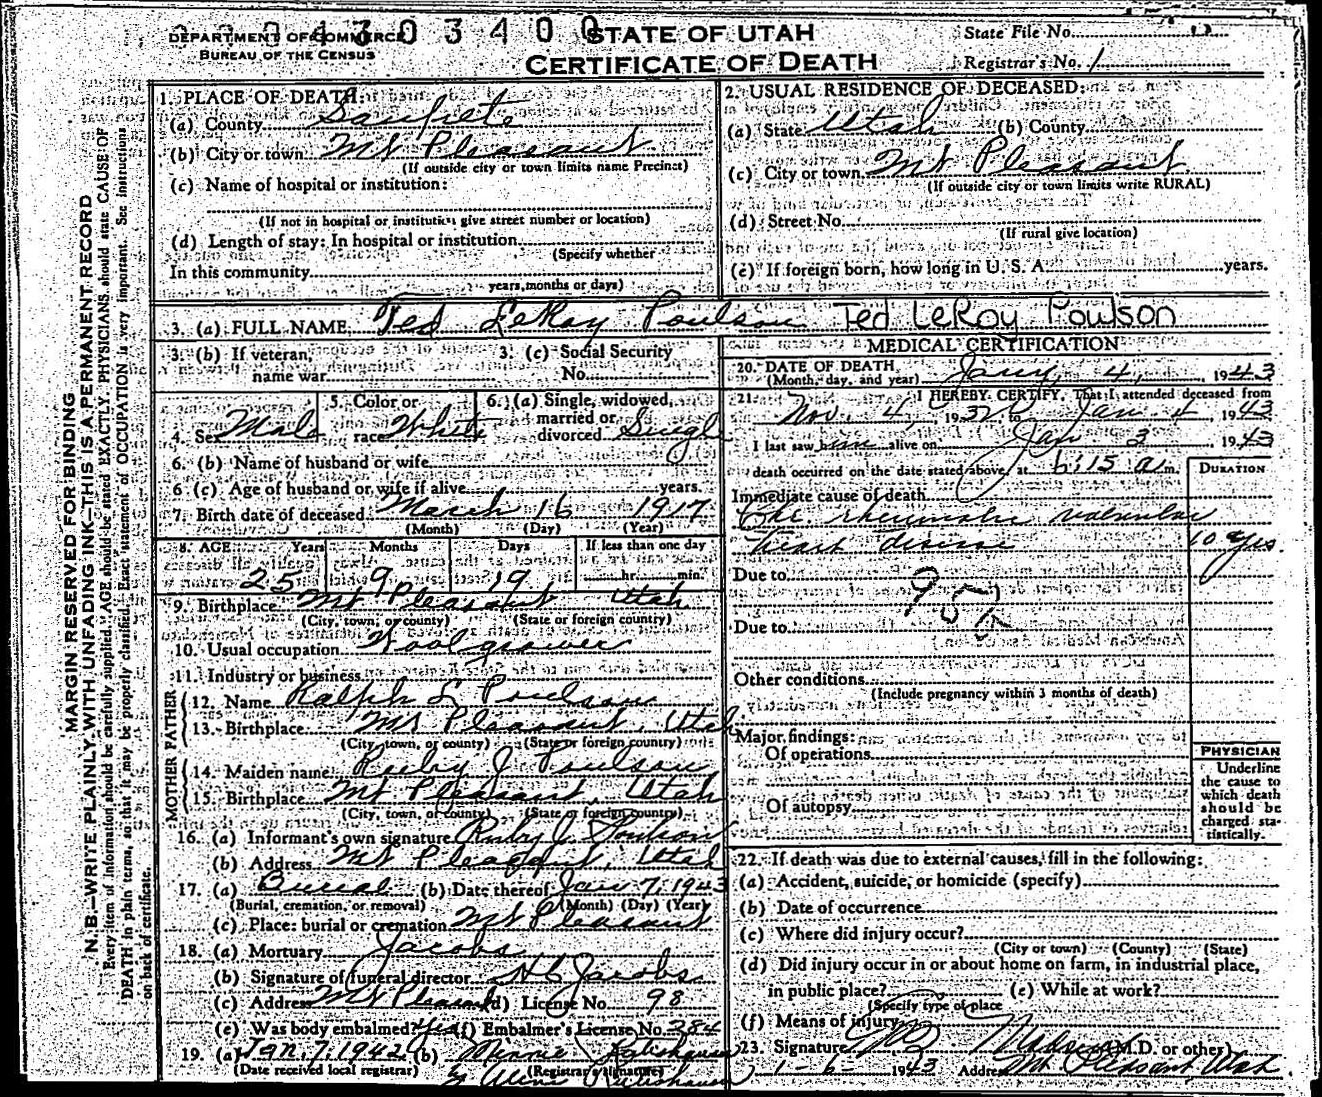 DEPARTMENT OF COMMERCE
BUREAU OF THE CENSUS
STATE OF UTAH
CERTIFICATE OF DEATH
State File No.
Registrar's No. 1
MARGIN RESERVED FOR BINDING
N. B.—WRITE PLAINLY, WITH UNFADING INK—THIS IS A PERMANENT RECORD
Every item of information should be carefully supplied. AGE should be stated EXACTLY. PHYSICIANS should state CAUSE OF
DEATH in plain terms, so that it may be properly classified. Exact statement of OCCUPATION is very important. See instructions
on back of certificate.
1. PLACE OF DEATH:
(a) County Sanpete
(b) City or town Mt Pleasant
(If outside city or town limits name Precinct)
(c) Name of hospital or institution:
(If not in hospital or institution give street number or location)
(d) Length of stay: In hospital or institution
(Specify whether
In this community
years, months or days)
2. USUAL RESIDENCE OF DECEASED:
(a) State Utah (b) County
(c) City or town Mt Pleasant
(If outside city or town limits write RURAL)
(d) Street No.
(If rural give location)
(e) If foreign born, how long in U. S. A. years.
3. (a) FULL NAME Ted LeRoy Poulson Ted LeRoy Poulson
3. (b) If veteran, name war
3. (c) Social Security No.
4. Sex Male
5. Color or race White
6. (a) Single, widowed, married or divorced Single
6. (b) Name of husband or wife
6 (c) Age of husband or wife if alive years.
7. Birth date of deceased March 16 1917
(Month) (Day) (Year)
8. AGE Years Months Days If less than one day
25 9 19 hr. min.
9. Birthplace Mt Pleasant Utah
(City, town, or county) (State or foreign country)
10. Usual occupation Wool grower
11. Industry or business
FATHER
12. Name Ralph L Poulson
13. Birthplace Mt Pleasant, Utah
(City, town, or county) (State or foreign country)
MOTHER
14. Maiden name Ruby J Poulson
15. Birthplace Mt Pleasant, Utah
(City, town, or county) (State or foreign country)
16. (a) Informant's own signature Ruby J. Poulson
(b) Address Mt Pleasant, Utah
17. (a) Burial (b) Date thereof Jan 7, 1943
(Burial, cremation, or removal) (Month) (Day) (Year)
(c) Place: burial or cremation Mt Pleasant
18. (a) Mortuary Jacobs
(b) Signature of funeral director Jacobs
(c) Address Mt Pleasant (d) License No. 98
(e) Was body embalmed? Yes (f) Embalmer's License No. 284
19. (a) Jan. 7, 1942 (b)
(Date received local registrar) (Registrar's signature)
MEDICAL CERTIFICATION
20. DATE OF DEATH
(Month, day, and year) Jany 4, 1943
21. I HEREBY CERTIFY, That I attended deceased from
Nov. 4, 1932 to Jan 4, 1943
I last saw him alive on Jan 3, 1943
death occurred on the date stated above, at 6:15 a m.
DURATION
Immediate cause of death
Chr. rheumatic valvular
heart disease 10 yrs
Due to
Due to
Other conditions
(Include pregnancy within 3 months of death)
Major findings:
Of operations
Of autopsy
PHYSICIAN
Underline
the cause to
which death
should be
charged sta-
tistically.
22. If death was due to external causes, fill in the following:
(a) Accident, suicide, or homicide (specify)
(b) Date of occurrence
(c) Where did injury occur?
(City or town) (County) (State)
(d) Did injury occur in or about home on farm, in industrial place,
in public place? (e) While at work?
(Specify type of place
(f) Means of injury
23. Signature Madsen (M.D. or other)
1-6- 1943 Address Mt Pleasant Utah